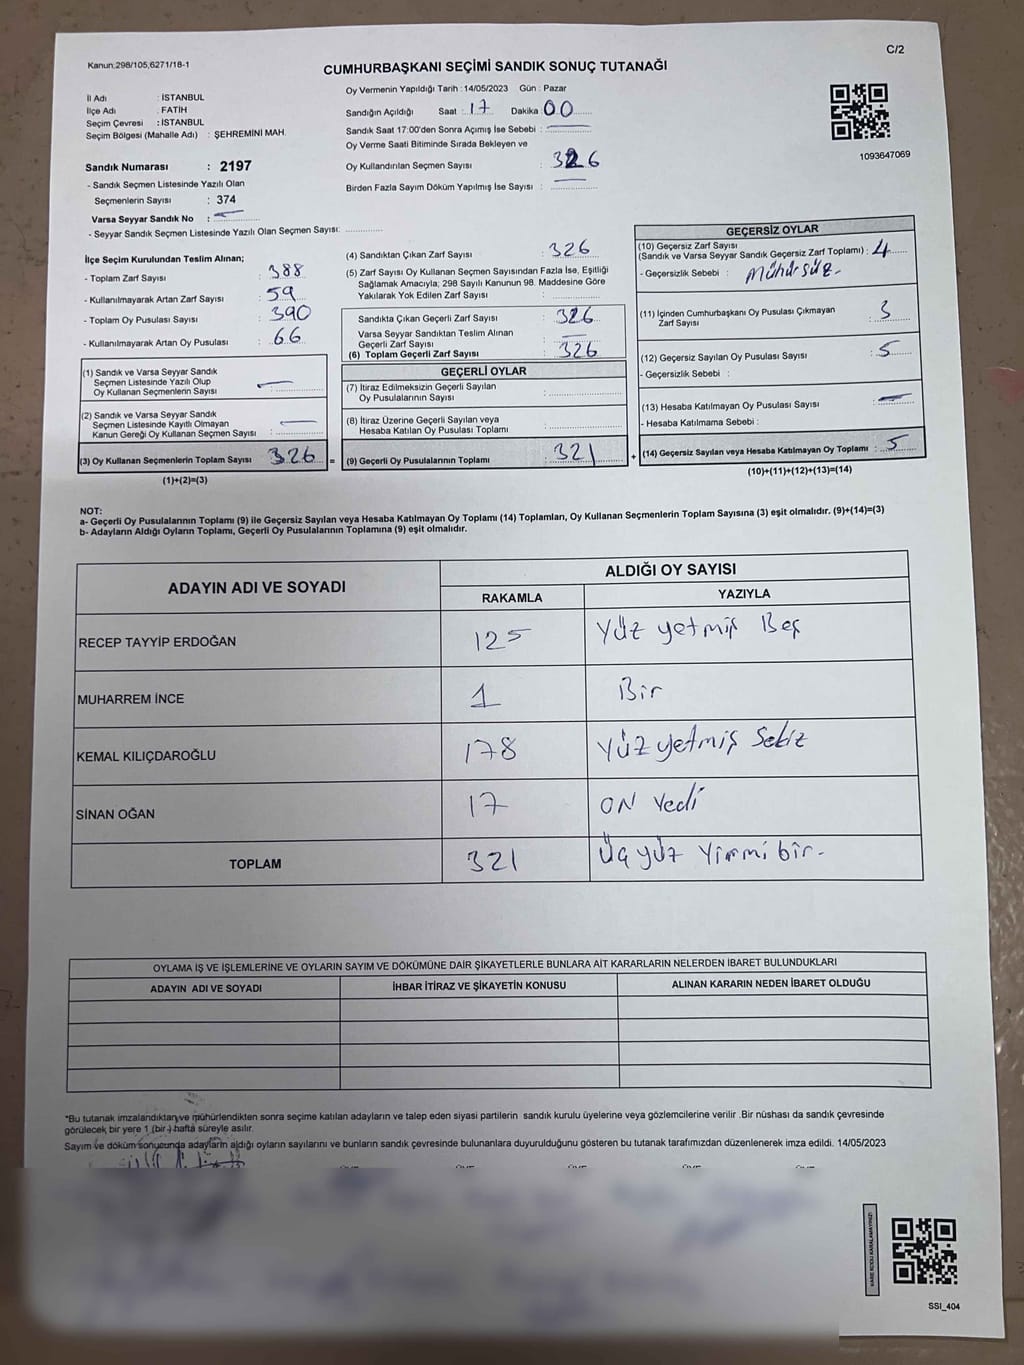 C/2
Kanun:298/105,6271/18-1
CUMHURBAŞKANI SEÇİMİ SANDIK SONUÇ TUTANAĞI
İl Adı : İSTANBUL
İlçe Adı : FATİH
Seçim Çevresi : İSTANBUL
Seçim Bölgesi (Mahalle Adı) : ŞEHREMİNİ MAH.
Oy Vermenin Yapıldığı Tarih : 14/05/2023 Gün : Pazar
Sandığın Açıldığı Saat : 17 Dakika : 00
Sandık Saat 17:00'den Sonra Açımış İse Sebebi :
Oy Verme Saati Bitiminde Sırada Bekleyen ve
Oy Kullandırılan Seçmen Sayısı : 326
Birden Fazla Sayım Döküm Yapılmış İse Sayısı :
1093647069
Sandık Numarası : 2197
- Sandık Seçmen Listesinde Yazılı Olan
Seçmenlerin Sayısı : 374
Varsa Seyyar Sandık No :
- Seyyar Sandık Seçmen Listesinde Yazılı Olan Seçmen Sayısı:
İlçe Seçim Kurulundan Teslim Alınan;
- Toplam Zarf Sayısı : 388
- Kullanılmayarak Artan Zarf Sayısı : 59
- Toplam Oy Pusulası Sayısı : 390
- Kullanılmayarak Artan Oy Pusulası : 66
(1) Sandık ve Varsa Seyyar Sandık
Seçmen Listesinde Yazılı Olup
Oy Kullanan Seçmenlerin Sayısı :
(2) Sandık ve Varsa Seyyar Sandık
Seçmen Listesinde Kayıtlı Olmayan
Kanun Gereği Oy Kullanan Seçmen Sayısı :
(3) Oy Kullanan Seçmenlerin Toplam Sayısı 326 =
(1)+(2)=(3)
(4) Sandıktan Çıkan Zarf Sayısı : 326
(5) Zarf Sayısı Oy Kullanan Seçmen Sayısından Fazla İse, Eşitliği
Sağlamak Amacıyla; 298 Sayılı Kanunun 98. Maddesine Göre
Yakılarak Yok Edilen Zarf Sayısı :
Sandıkta Çıkan Geçerli Zarf Sayısı : 326
Varsa Seyyar Sandıktan Teslim Alınan
Geçerli Zarf Sayısı :
(6) Toplam Geçerli Zarf Sayısı : 326
GEÇERLİ OYLAR
(7) İtiraz Edilmeksizin Geçerli Sayılan
Oy Pusulalarının Sayısı :
(8) İtiraz Üzerine Geçerli Sayılan veya
Hesaba Katılan Oy Pusulası Toplamı :
(9) Geçerli Oy Pusulalarının Toplamı : 321 +
GEÇERSİZ OYLAR
(10) Geçersiz Zarf Sayısı
(Sandık ve Varsa Seyyar Sandık Geçersiz Zarf Toplamı) : 4
- Geçersizlik Sebebi : Mühürsüz-
(11) İçinden Cumhurbaşkanı Oy Pusulası Çıkmayan
Zarf Sayısı : 3
(12) Geçersiz Sayılan Oy Pusulası Sayısı : 5
- Geçersizlik Sebebi :
(13) Hesaba Katılmayan Oy Pusulası Sayısı :
- Hesaba Katılmama Sebebi :
(14) Geçersiz Sayılan veya Hesaba Katılmayan Oy Toplamı : 5
(10)+(11)+(12)+(13)=(14)
NOT:
a- Geçerli Oy Pusulalarının Toplamı (9) ile Geçersiz Sayılan veya Hesaba Katılmayan Oy Toplamı (14) Toplamları, Oy Kullanan Seçmenlerin Toplam Sayısına (3) eşit olmalıdır. (9)+(14)=(3)
b- Adayların Aldığı Oyların Toplamı, Geçerli Oy Pusulalarının Toplamına (9) eşit olmalıdır.
ADAYIN ADI VE SOYADI
ALDIĞI OY SAYISI
RAKAMLA YAZIYLA
RECEP TAYYİP ERDOĞAN 125 Yüz yetmiş Beş
MUHARREM İNCE 1 Bir
KEMAL KILIÇDAROĞLU 178 Yüz yetmiş Sekiz
SİNAN OĞAN 17 ON Yedi
TOPLAM 321 Üç yüz Yirmi bir-
OYLAMA İŞ VE İŞLEMLERİNE VE OYLARIN SAYIM VE DÖKÜMÜNE DAİR ŞİKAYETLERLE BUNLARA AİT KARARLARIN NELERDEN İBARET BULUNDUKLARI
ADAYIN ADI VE SOYADI İHBAR İTİRAZ VE ŞİKAYETİN KONUSU ALINAN KARARIN NEDEN İBARET OLDUĞU
*Bu tutanak imzalandıktan ve mühürlendikten sonra seçime katılan adayların ve talep eden siyasi partilerin sandık kurulu üyelerine veya gözlemcilerine verilir .Bir nüshası da sandık çevresinde
görülecek bir yere 1 (bir) hafta süreyle asılır.
Sayım ve döküm sonucunda adayların aldığı oyların sayılarını ve bunların sandık çevresinde bulunanlara duyurulduğunu gösteren bu tutanak tarafımızdan düzenlenerek imza edildi. 14/05/2023
KARE KODU KARALAMAYINIZ!
SSI_404